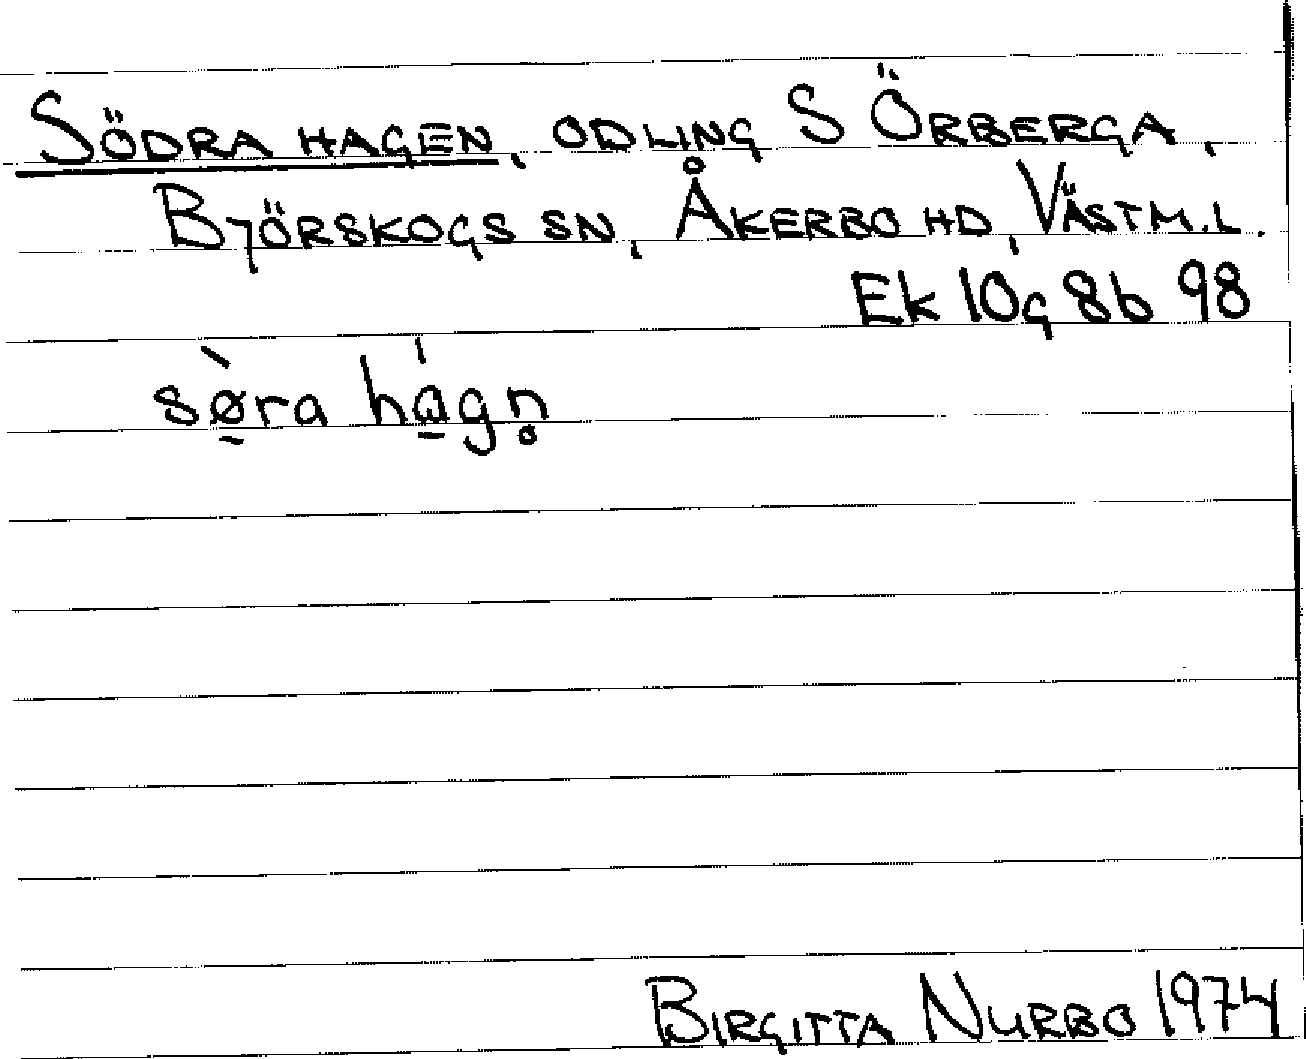 SÖDRA HAGEN, ODLING S ÖRBERGA,
BJÖRSKOGS SN, ÅKERBO HD, VÄSTM.L.
Ek 10g 8b 98
sø̱̀ra há̱gn̥
BIRGITTA NURBO 1974